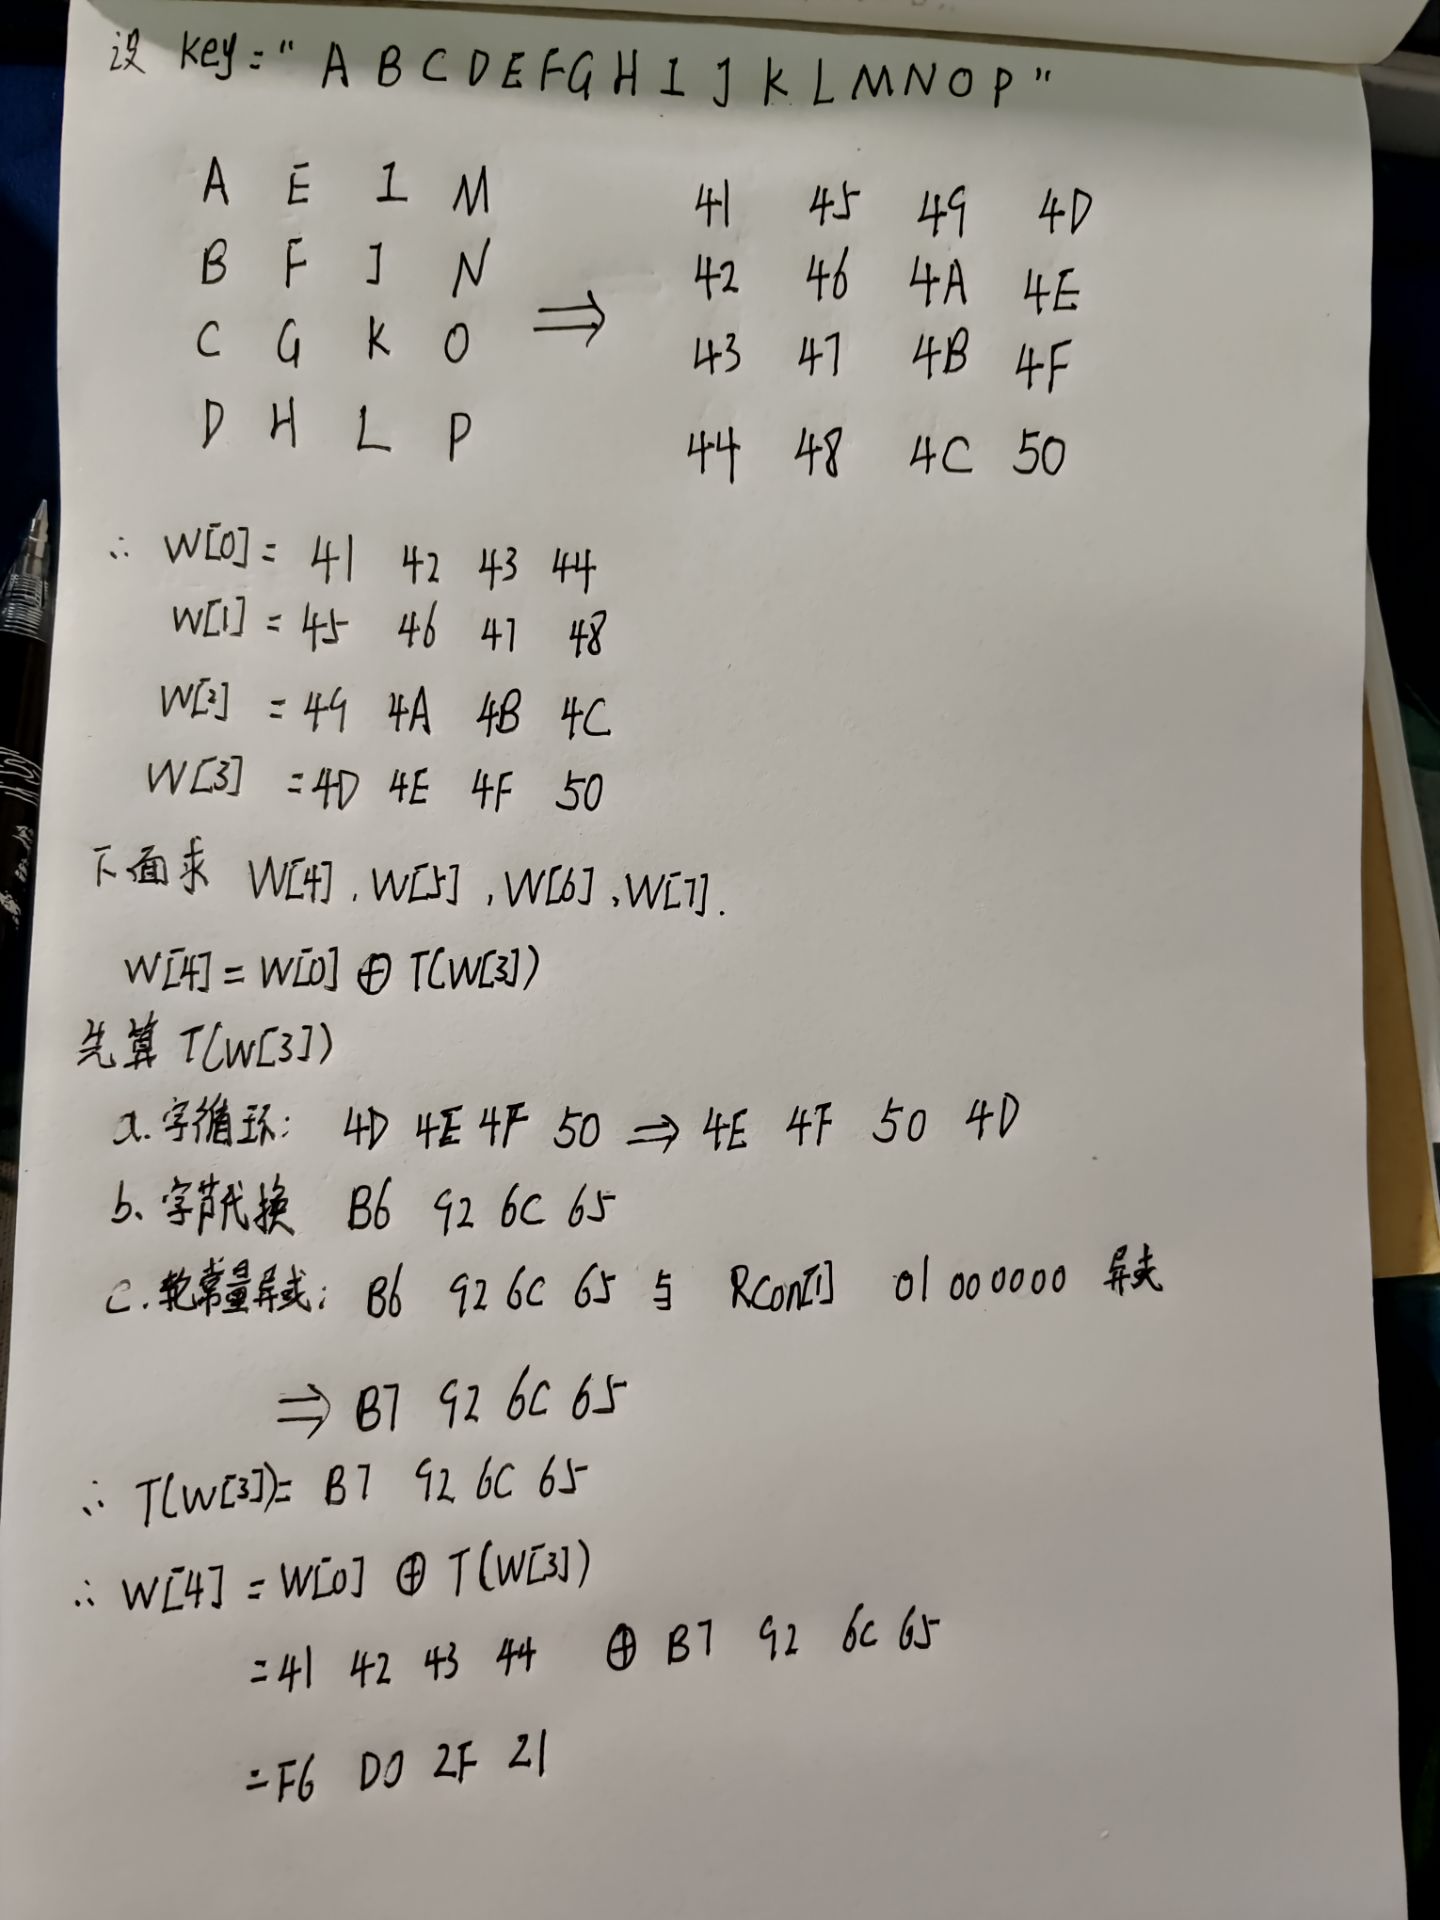 设 key = " A B C D E F G H I J K L M N O P "
A E I M
B F J N
C G K O
D H L P
⇒
41 45 49 4D
42 46 4A 4E
43 47 4B 4F
44 48 4C 50
∴ W[0] = 41 42 43 44
W[1] = 45 46 47 48
W[2] = 49 4A 4B 4C
W[3] = 4D 4E 4F 50
下面求 W[4], W[5], W[6], W[7].
W[4] = W[0] ⊕ T(W[3])
先算 T(W[3])
a. 字循环: 4D 4E 4F 50 ⇒ 4E 4F 50 4D
b. 字节代换 B6 92 6C 65
c. 轮常量异或: B6 92 6C 65 与 RCon[1] 01 00 00 00 异或
⇒ B7 92 6C 65
∴ T(W[3]) = B7 92 6C 65
∴ W[4] = W[0] ⊕ T(W[3])
= 41 42 43 44 ⊕ B7 92 6C 65
= F6 D0 2F 21